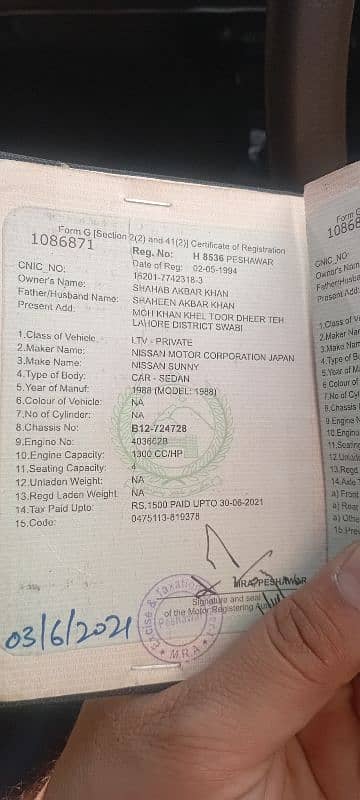 Form G [Section 2(2) and 41(2)] Certificate of Registration
1086871
Reg. No: H 8536 PESHAWAR
Date of Reg: 02-05-1994
CNIC_NO: 16201-7742318-3
Owner's Name: SHAHAB AKBAR KHAN
Father/Husband Name: SHAHEEN AKBAR KHAN
Present Add: MOH KHAN KHEL TOOR DHEER TEH
LAHORE DISTRICT SWABI
1.Class of Vehicle: LTV - PRIVATE
2.Maker Name: NISSAN MOTOR CORPORATION JAPAN
3.Make Name: NISSAN SUNNY
4.Type of Body: CAR - SEDAN
5.Year of Manuf: 1988 (MODEL: 1988)
6.Colour of Vehicle: NA
7.No of Cylinder: NA
8.Chassis No: B12-724728
9.Engino No: 4036628
10.Engine Capacity: 1300 CC/HP
11.Seating Capacity: 4
12.Unladen Weight: NA
13.Regd Laden Weight: NA
14.Tax Paid Upto: RS.1500 PAID UPTO 30-06-2021
15.Code: 0475113-819378
MRA PESHAWAR
Signature and seal
of the Motor Registering
03/6/2021
Excise & Taxation
Peshawar
M.R.A
Form G
CNIC_NO
Owner's Nam
Present Add:
1.Class of V
2.Maker Nam
3.Make Nam
4.Type of B
5.Year of M
6.Colour of
7.No of Cyl
8.Chassis
9.Engine
10.Engine
11.Seatin
12.Unlade
13.Regd
a) Front
a) Rear